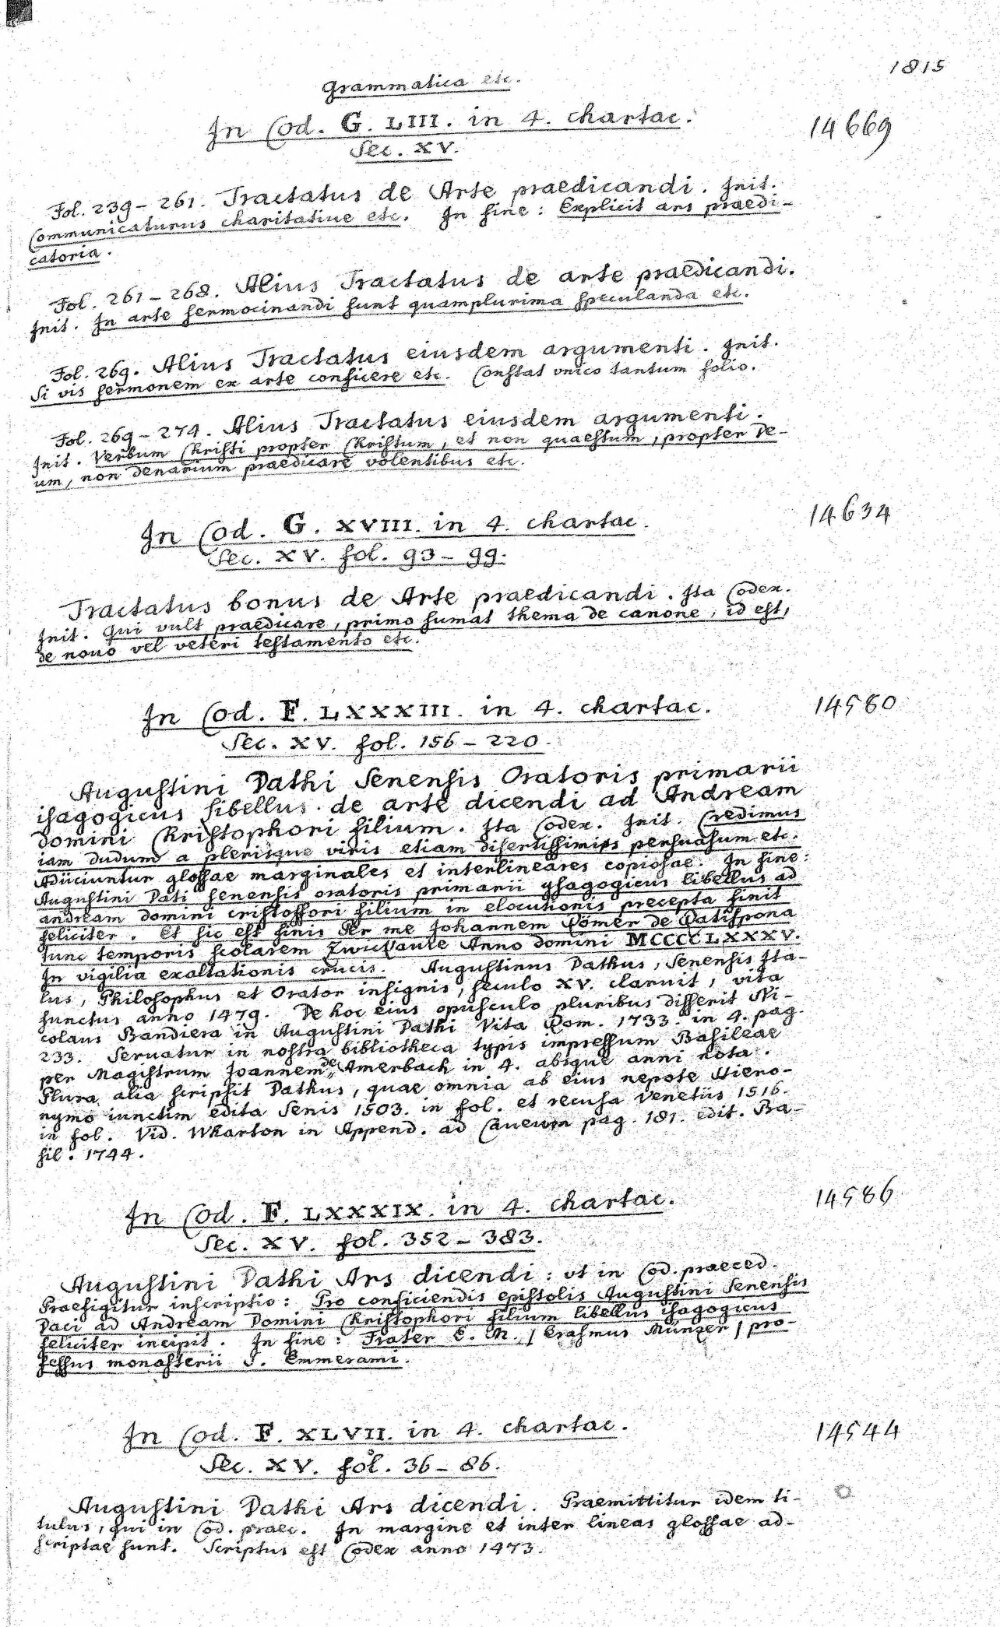 1815
Grammatica etc.
In Cod. G. LIII. in 4. chartac.
14669
Sec. XV.
Fol. 239 – 261. Tractatus de Arte praedicandi. Init.
Communicaturus charitatiue etc. In fine: Explicit ars praedi-
catoria.
Fol. 261 – 268. Alius Tractatus de arte praedicandi.
Init. In arte sermocinandi sunt quamplurima speculanda etc.
Fol. 269. Alius Tractatus eiusdem argumenti. Init.
Si vis sermonem ex arte conficere etc. Constat vnico tantum folio.
Fol. 269 – 274. Alius Tractatus eiusdem argumenti.
Init. Verbum Christi propter Christum, et non quaestum, propter De-
um, non denarium praedicare volentibus etc.
In Cod. G. XVIII. in 4. chartac.
14634
Sec. XV. fol. 93 – 99.
Tractatus bonus de Arte praedicandi. Ita Codex.
Init. Qui vult praedicare, primo sumat thema de canone, id est,
de nouo vel veteri testamento etc.
In Cod. F. LXXXIII. in 4. chartac.
14580
Sec. XV. fol. 156 – 220.
Augustini Dathi Senensis Oratoris primarii
isagogicus libellus de arte dicendi ad Andream
domini Christophori filium. Ita Codex. Init. Credimus
iam dudum a plerisque viris etiam disertissimis persuasum etc.
Adiiciuntur glossae marginales et interlineares copiosae. In fine:
Augustini Dati senensis oratoris primarii ysagogicus libellus ad
andream domini cristoffori filium in elocutionis precepta finit
feliciter. Et sic est finis Per me Johannem Römer de Ratispona
tunc temporis scolarem Zwickaule Anno domini MCCCCLXXXV.
In vigilia exaltationis crucis. Augustinus Dathus, Senensis Ita-
lus, Philosophus et Orator insignis, seculo XV. claruit, vita
functus anno 1479. De hoc eius opusculo pluribus disserit Ni-
colaus Bandiera in Augustini Dathi Vita Rom. 1733. in 4. pag.
233. Seruatur in nostra bibliotheca typis impressum Basileae
per Magistrum Joannem de Amerbach in 4. absque anni nota.
Plura alia scripsit Dathus, quae omnia ab eius nepote Hiero-
nymo iunctim edita Senis 1503. in fol. et recusa Venetiis 1516.
in fol. Vid. Wharton in Append. ad Caueum pag. 181. edit. Ba-
sil. 1744.
In Cod. F. LXXXIX. in 4. chartac.
14586
Sec. XV. fol. 352 – 383.
Augustini Dathi Ars dicendi: vt in Cod. praeced.
Praefigitur inscriptio: Pro conficiendis epistolis Augustini Senensis
Daci ad Andream Domini Christophori filium libellus isagogicus
feliciter incipit. In fine: Frater E. M. / Erasmus Münzer / pro-
fessus monasterii S. Emmerami.
In Cod. F. XLVII. in 4. chartac.
14544
Sec. XV. fol. 36 – 86.
Augustini Dathi Ars dicendi. Praemittitur idem ti-
tulus, qui in Cod. praec. In margine et inter lineas glossae ad-
scriptae sunt. Scriptus est Codex anno 1473.